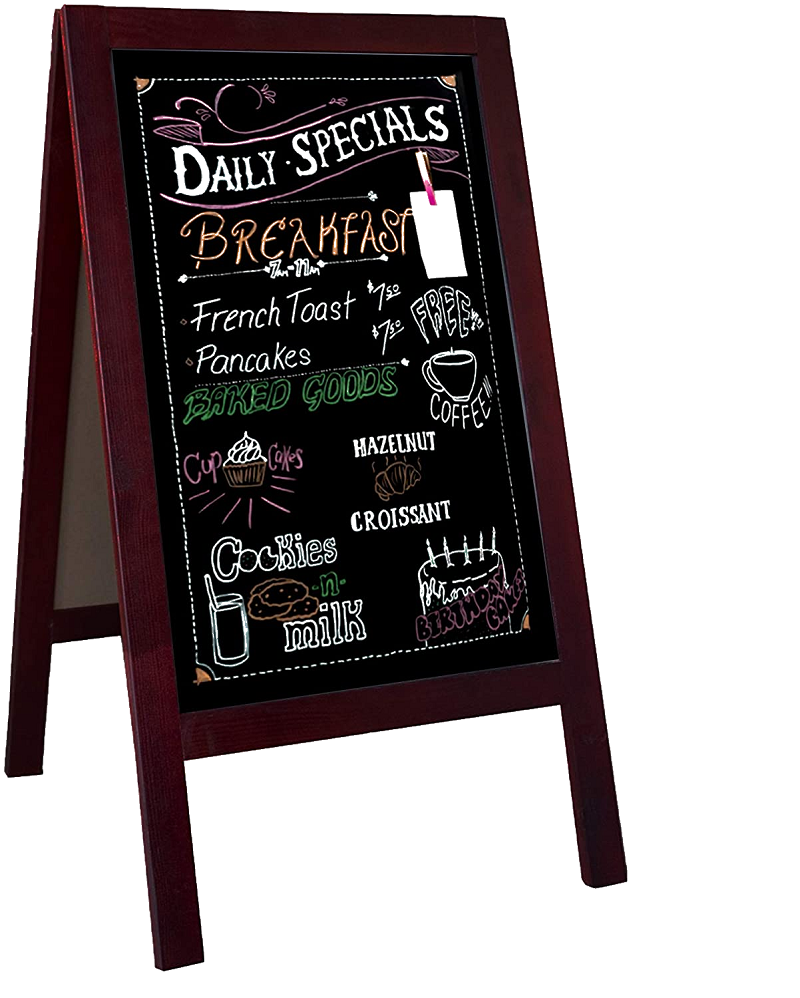 DAILY · SPECIALS
BREAKFAST
7AM-11AM
French Toast $7.50
Pancakes $7.50
FREE!!!
COFFEE!!!
BAKED GOODS
Cup Cakes
HAZELNUT
CROISSANT
Cookies
-n-
milk
BIRTHDAY
CAKES